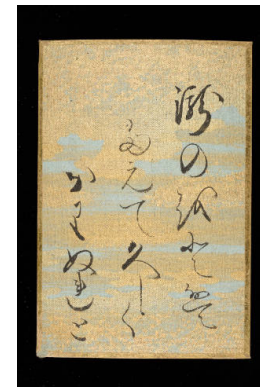 瀧のをとは
たえて久しく
なりぬれと